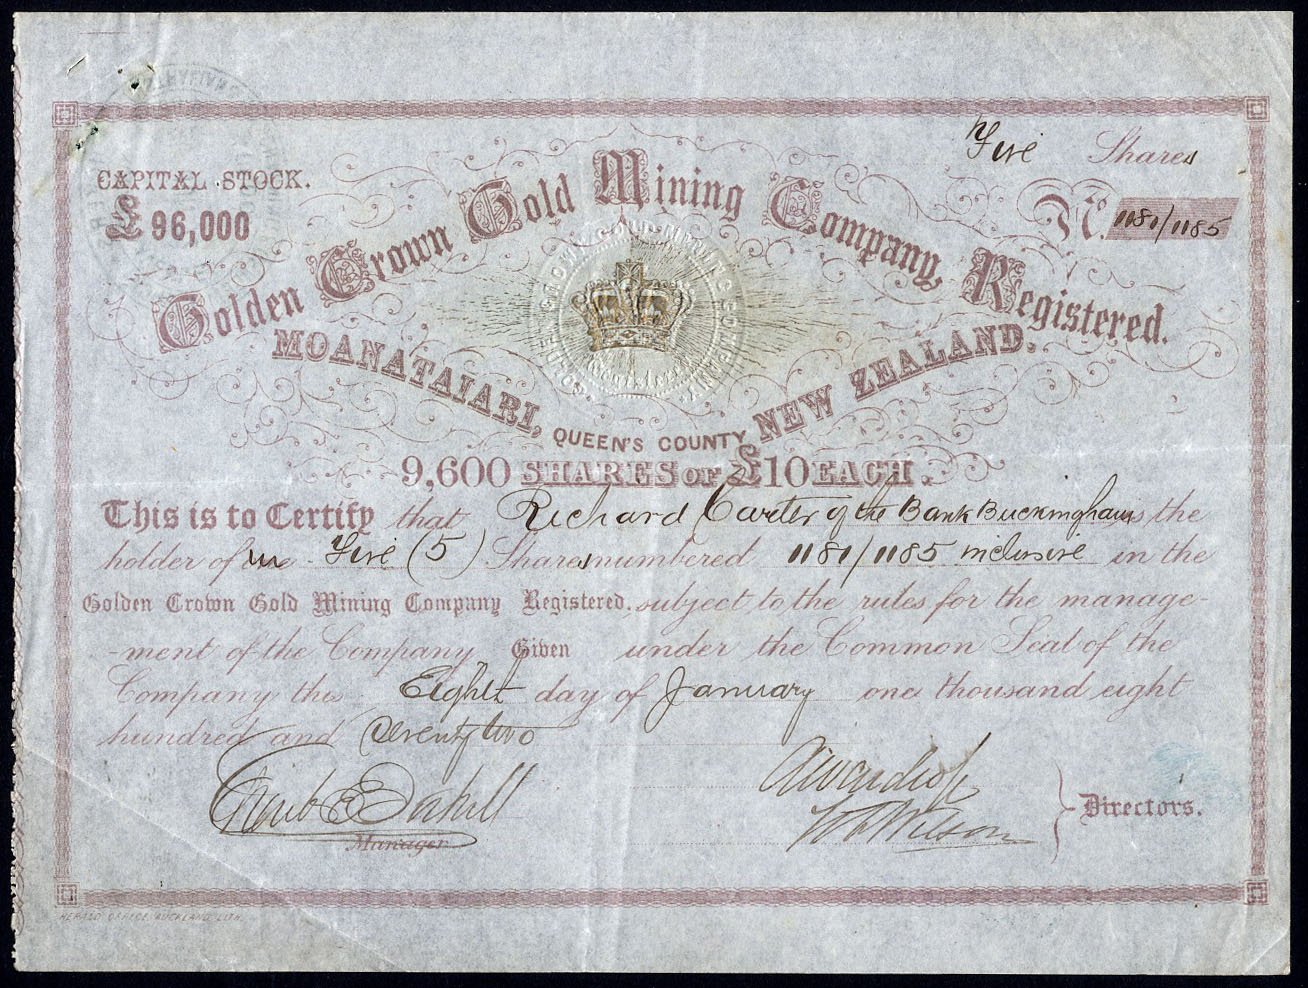 Five Shares
CAPITAL STOCK.
£96,000
No. 1181/1185
Golden Crown Gold Mining Company, Registered.
MOANATAIARI, QUEEN'S COUNTY NEW ZEALAND.
9,600 SHARES OF £10 EACH.
This is to Certify that Richard Carter of the Bank Buckingham is the
holder of Five (5) Shares numbered 1181/1185 inclusive in the
Golden Crown Gold Mining Company Registered. subject to the rules for the manage-
-ment of the Company Given under the Common Seal of the
Company this Eight day of January one thousand eight
hundred and Seventy two
Manager
Wilson
Directors.
HERALD OFFICE, AUCKLAND LITH.